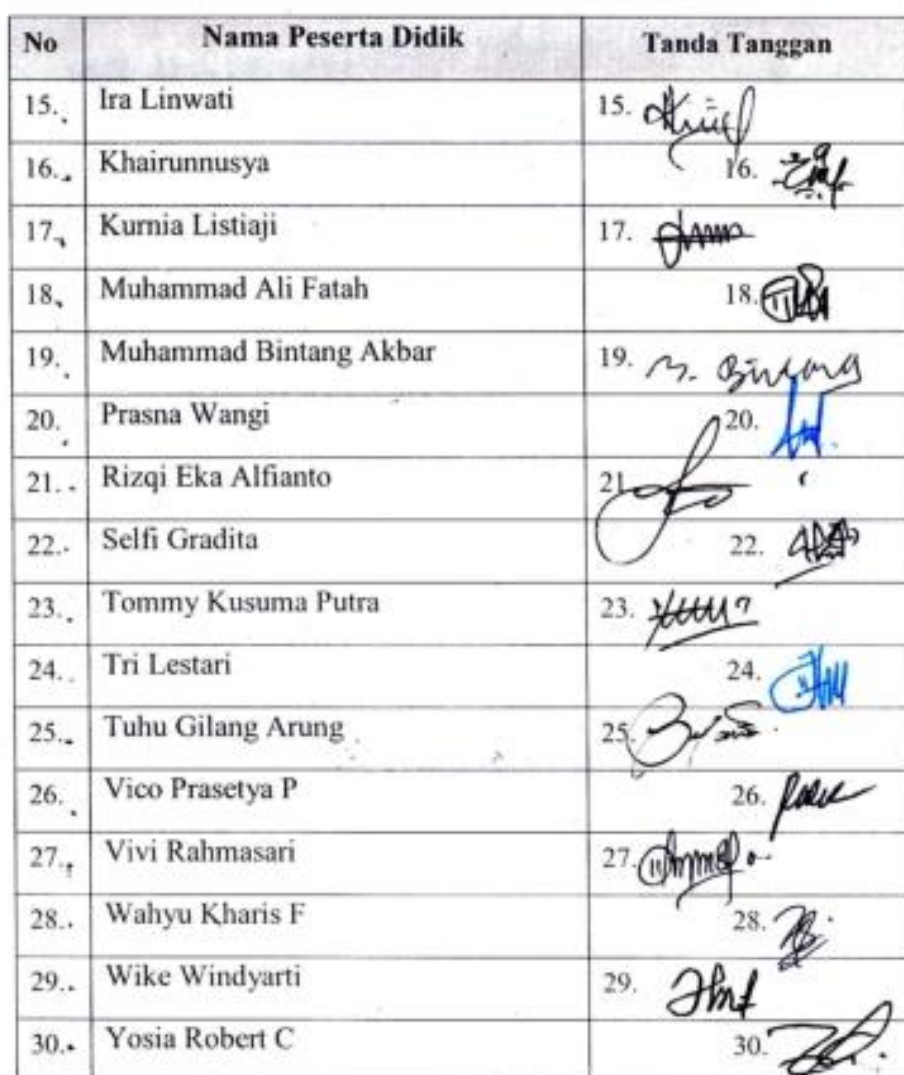 No Nama Peserta Didik Tanda Tanggan
15. Ira Linwati 15.
16. Khairunnusya 16.
17. Kurnia Listiaji 17.
18. Muhammad Ali Fatah 18.
19. Muhammad Bintang Akbar 19. M. Bintang
20. Prasna Wangi 20.
21. Rizqi Eka Alfianto 21.
22. Selfi Gradita 22.
23. Tommy Kusuma Putra 23.
24. Tri Lestari 24.
25. Tuhu Gilang Arung 25.
26. Vico Prasetya P 26.
27. Vivi Rahmasari 27.
28. Wahyu Kharis F 28.
29. Wike Windyarti 29.
30. Yosia Robert C 30.